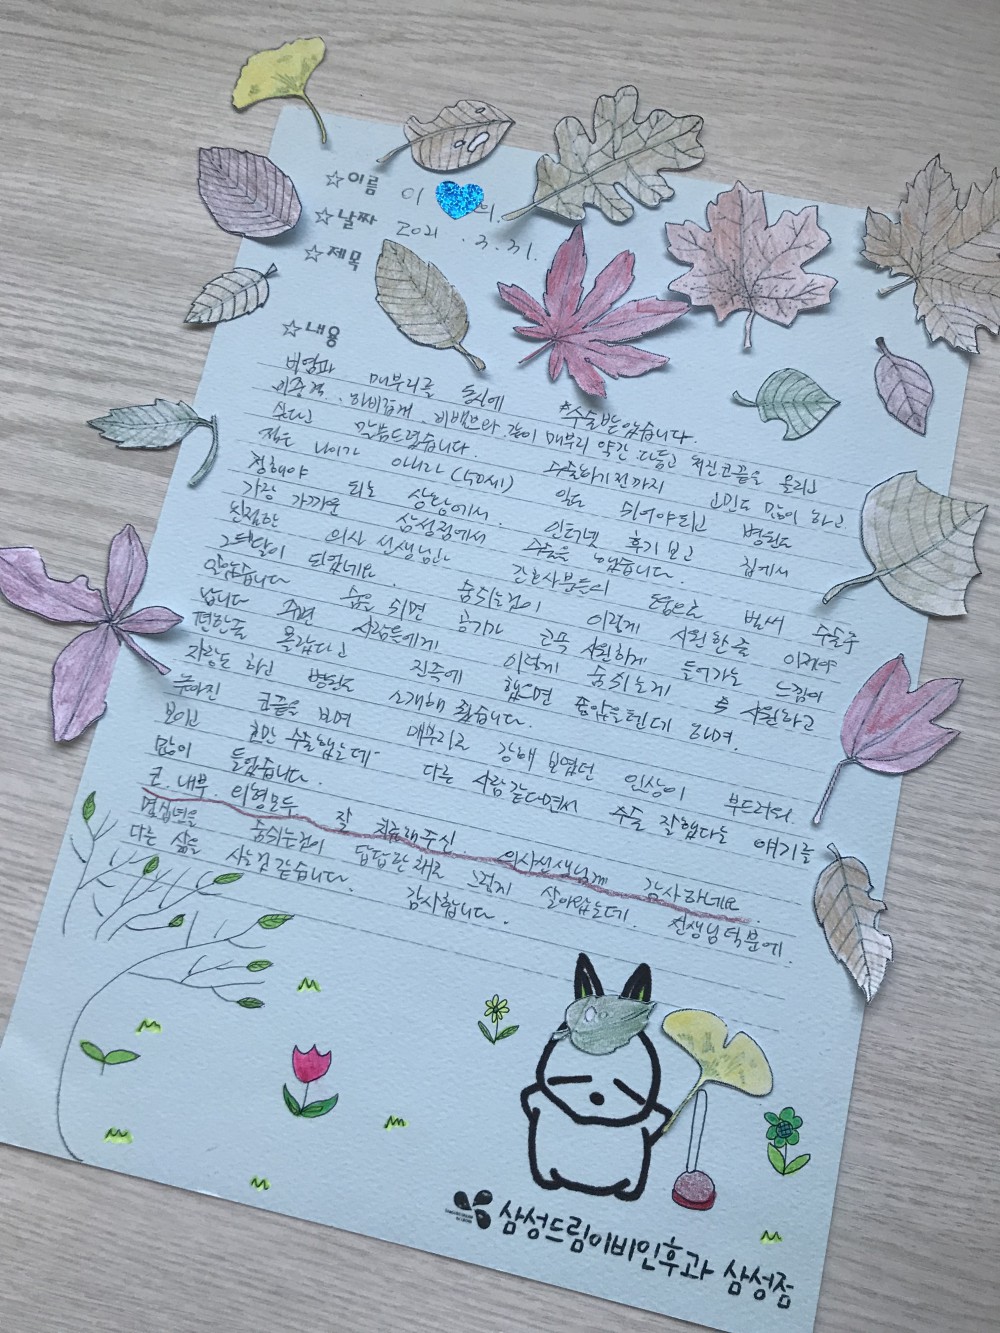 ☆이름 이 의.
☆날짜 2021. 3. 31.
☆제목
☆내용
비염과 매부리를 동시에 수술받았습니다.
비중격. 하비갑개. 비밸브와 같이 매부리 약간 다듬고 처진코끝을 올리고
싶다고 말씀드렸습니다.
젊은 나이가 아니라 (50세) 수술하기전까지 고민도 많이 하고
정해야 되는 상황에서. 일도 쉬어야되고 병원도
가장 가까운 삼성점에서 인터넷 후기 보고 집에서
친절한 의사 선생님과 간호사분들의 수술을 했습니다.
그뒤달이 되었네요. 도움으로 벌써 수술후
숨쉬는것이 이렇게 시원한줄 이제야
알았습니다 숨을 쉬면 공기가 코쪽 시원하게 들어가는 느낌이
납니다 주변 사람들에게 이렇게 숨쉬는게 쭉 시원하고
편한줄 몰랐다고 진즉에 했으면 좋았을텐데 하며.
자랑도 하고 병원도 소개해 줬습니다.
높아진 코끝을 보며 매부리로 강해 보였던 인상이 부드러워
보이고 코만 수술했는데 다른 사람같다면서 수술 잘했다는 얘기를
많이 들었습니다.
코. 내부. 외형모두 잘 치료해주신 의사선생님께 감사하네요.
몇십년을 숨쉬는것이 답답한채로 그렇게 살아왔는데. 선생님덕분에.
다른 삶을 사는것 같습니다. 감사합니다.
삼성드림이비인후과 삼성점